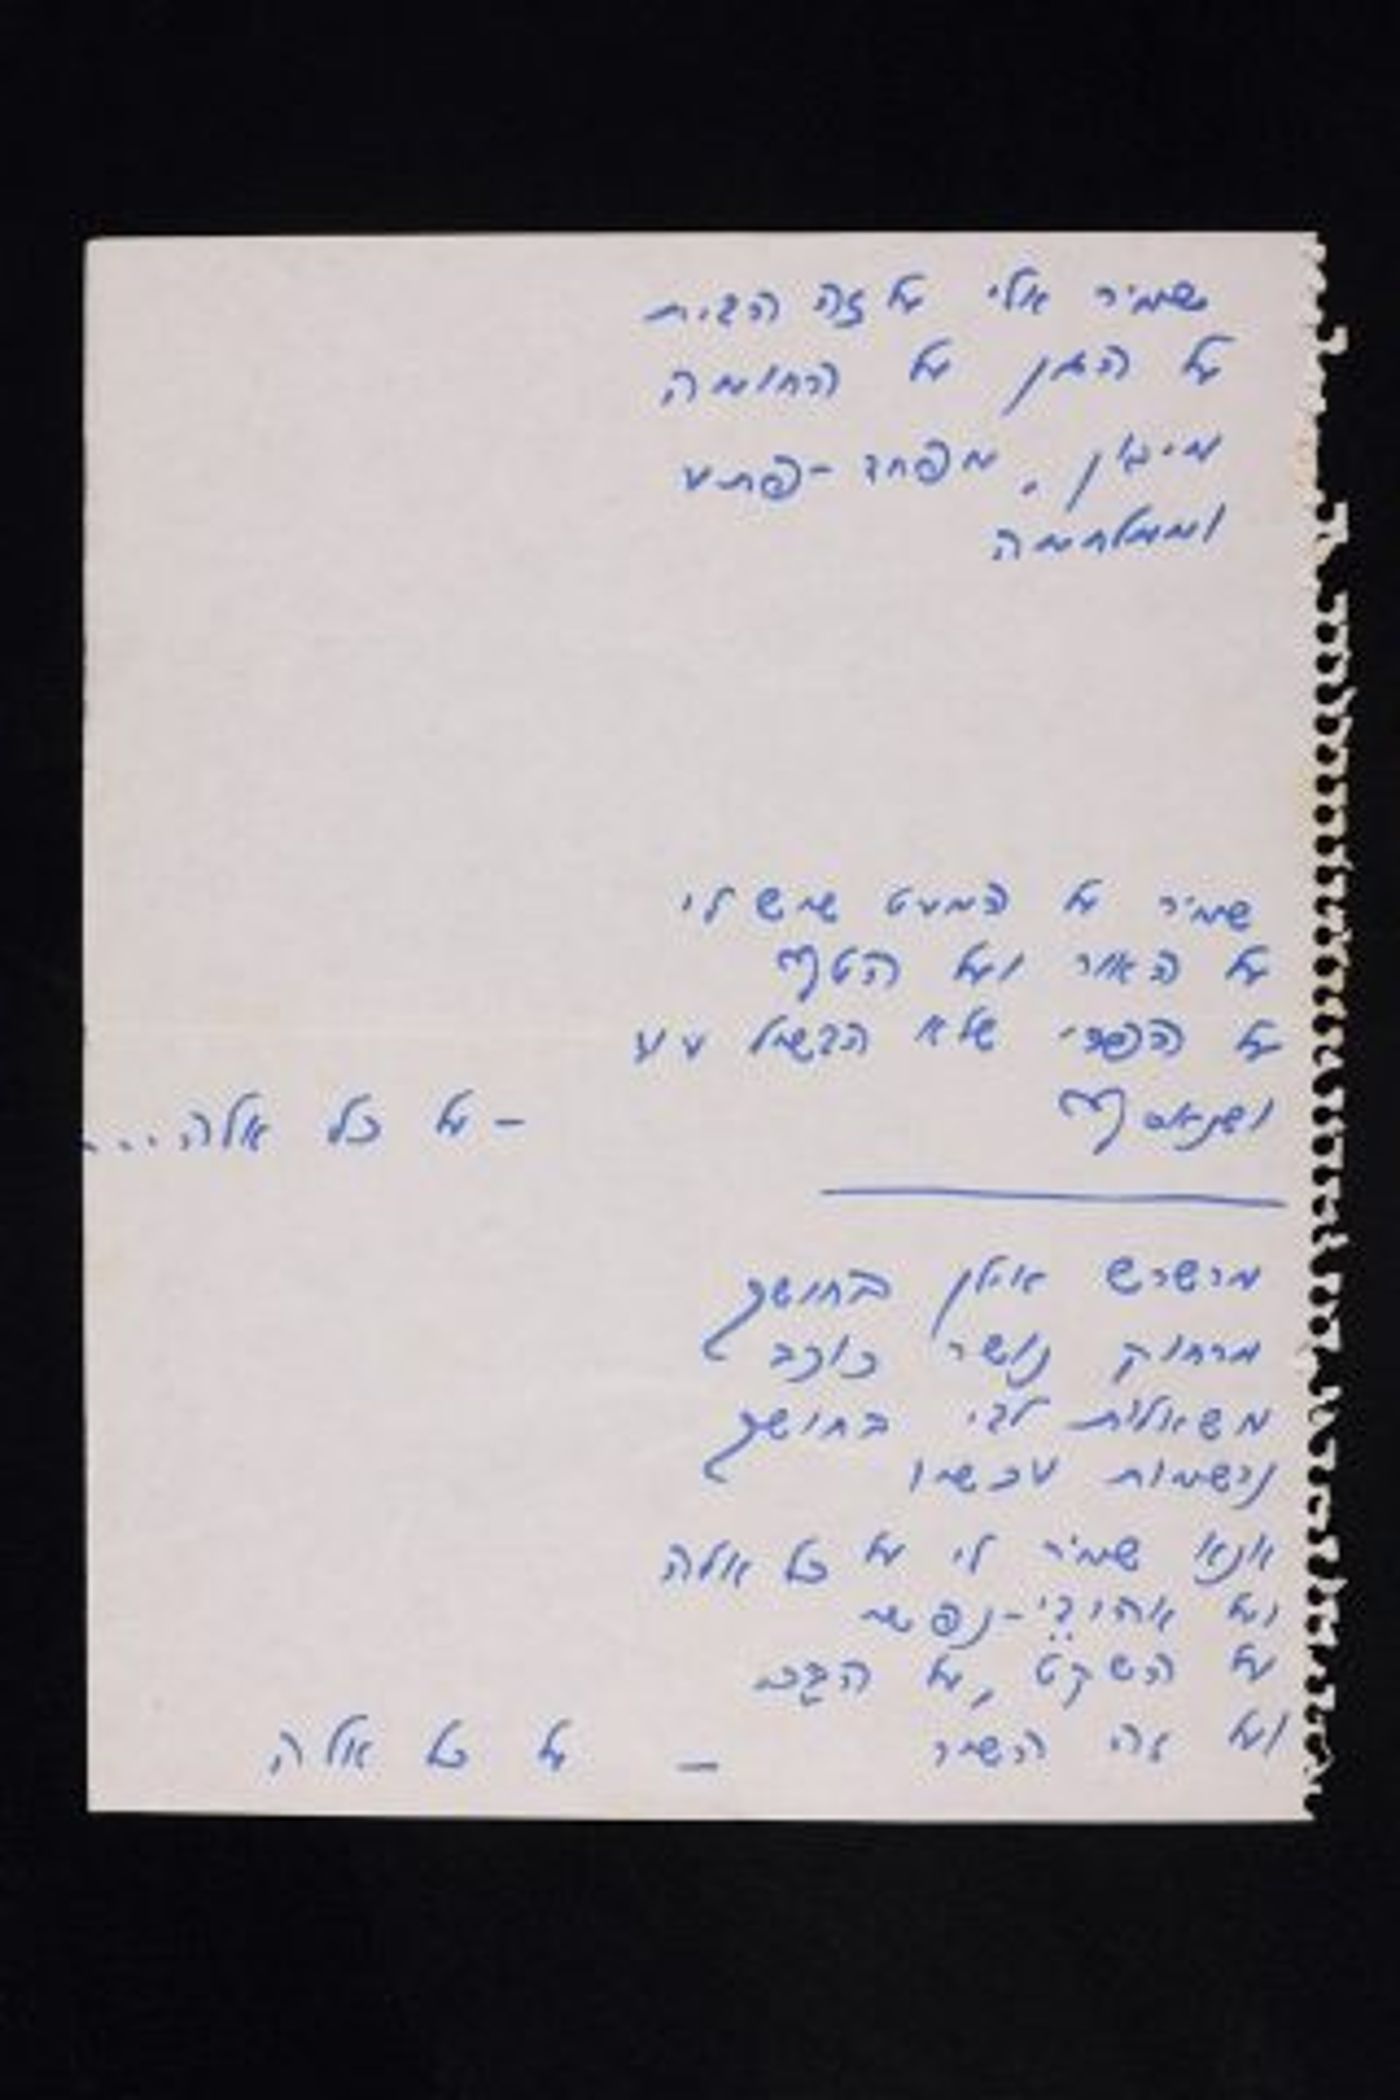 שמור אלי על זה הבית
על הגן על החומה
מיגון, מפחד-פתע
וממלחמה
שמור על המעט שיש לי
על האור ועל הטף
על הפרי שלא הבשיל עוד
ושנאסף
– על כל אלה...
מרשרש אילן בחושך
מרחוק נושר כוכב
משאלות לבי בחושך
נרשמות עכשיו
אנא שמור לי על כל אלה
ועל אהובי-נפשי
על השקט, על הבכי
ועל זה השיר
– על כל אלה